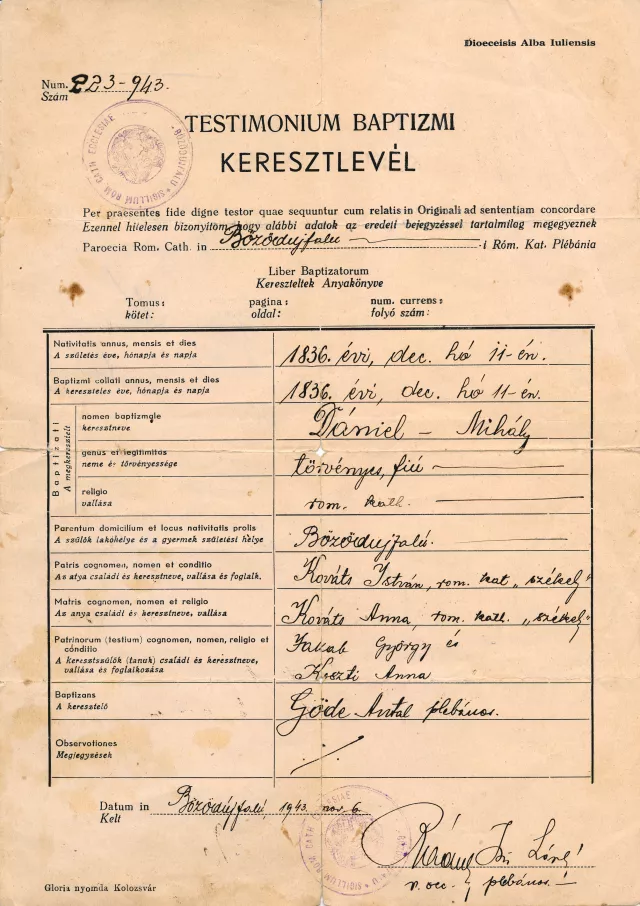 Dioeceisis Alba Iuliensis
Num. 223-943.
Szám
TESTIMONIUM BAPTIZMI
KERESZTLEVÉL
Per praesentes fide digne testor quae sequuntur cum relatis in Originali ad sententiam concordare
Ezennel hitelesen bizonyítom, hogy alábbi adatok az eredeti bejegyzéssel tartalmilag megegyeznek
Paroecia Rom. Cath. in Bözödújfalu -i Róm. Kat. Plébánia
Liber Baptizatorum
Kereszteltek Anyakönyve
Tomus: pagina: num. currens:
kötet: oldal: folyó szám:
Nativitatis annus, mensis et dies
A születés éve, hónapja és napja
1836. évi, dec. hó 11-én.
Baptizmi collati annus, mensis et dies
A keresztelés éve, hónapja és napja
1836. évi, dec. hó 11-én.
Baptizati
A megkeresztelt
nomen baptizmale
keresztneve
Dániel - Mihály
genus et legitimitas
neme és törvényessége
törvényes, fiú
religio
vallása
rom. kath.
Parentum domicilium et locus nativitatis prolis
A szülők lakóhelye és a gyermek születési helye
Bözödújfalu.
Patris cognomen, nomen et conditio
Az atya családi és keresztneve, vallása és foglalk.
Kováts István, rom. kat „székely"
Matris cognomen, nomen et religio
Az anya családi és keresztneve, vallása
Kováts Anna, rom. kath. „székely"
Patrinorum (testium) cognomen, nomen, religio et
conditio
A keresztszülők (tanuk) családi és keresztneve,
vallása és foglalkozása
Jakab György és
Keszti Anna
Baptizans
A keresztelő
Göde Antal plébános.
Observationes
Megjegyzések
Datum in Bözödújfalu, 1943. nov. 6.
Kelt
plébános
Gloria nyomda Kolozsvár